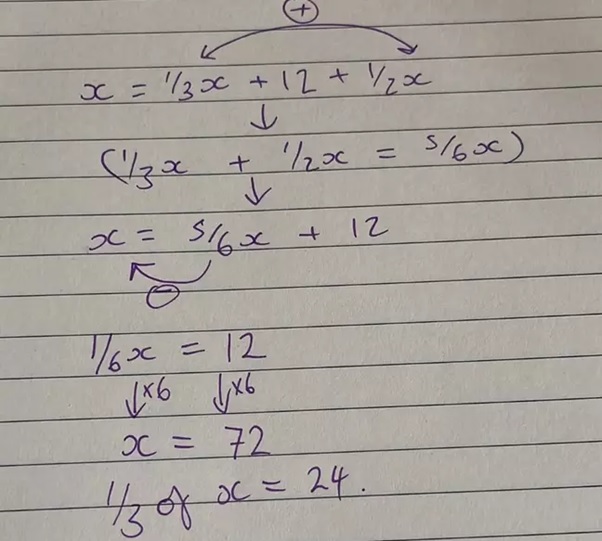 +
x = 1/3x + 12 + 1/2x
↓
(1/3x + 1/2x = 5/6x)
↓
x = 5/6x + 12
−
1/6x = 12
↓×6 ↓×6
x = 72
1/3 of x = 24.